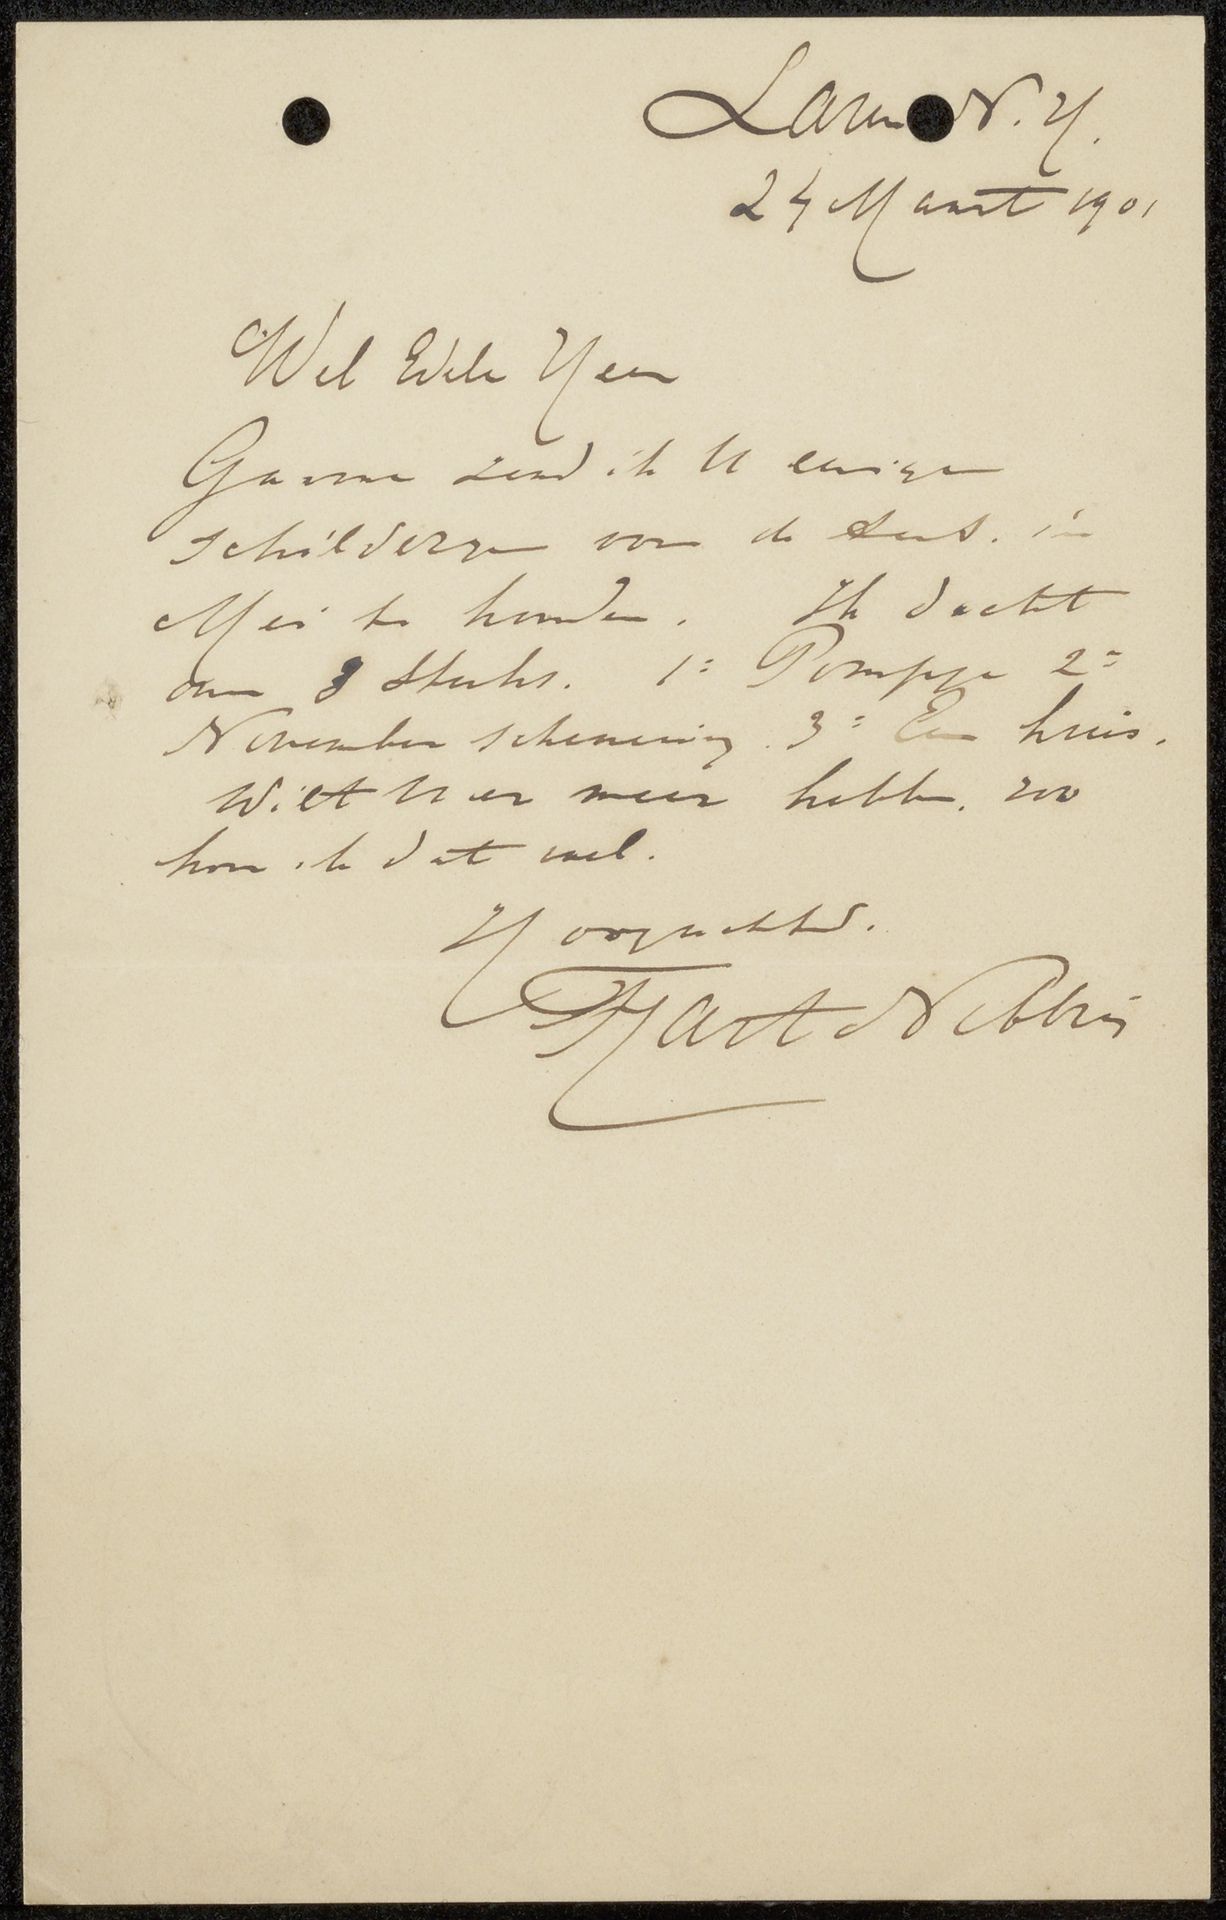 Laren N.H.
24 Maart 1901
Wel Edele Heer
Gaarne zend ik U eenige
schilderyen voor de tent. in
Mei te houden. Ik dacht
om 3 stuks. 1= Pompje 2=
November schemering. 3= Een huis.
Wilt U er meer hebben, zoo
kon ik dat wel.
Hoogachtend.
Hart Nibbrig